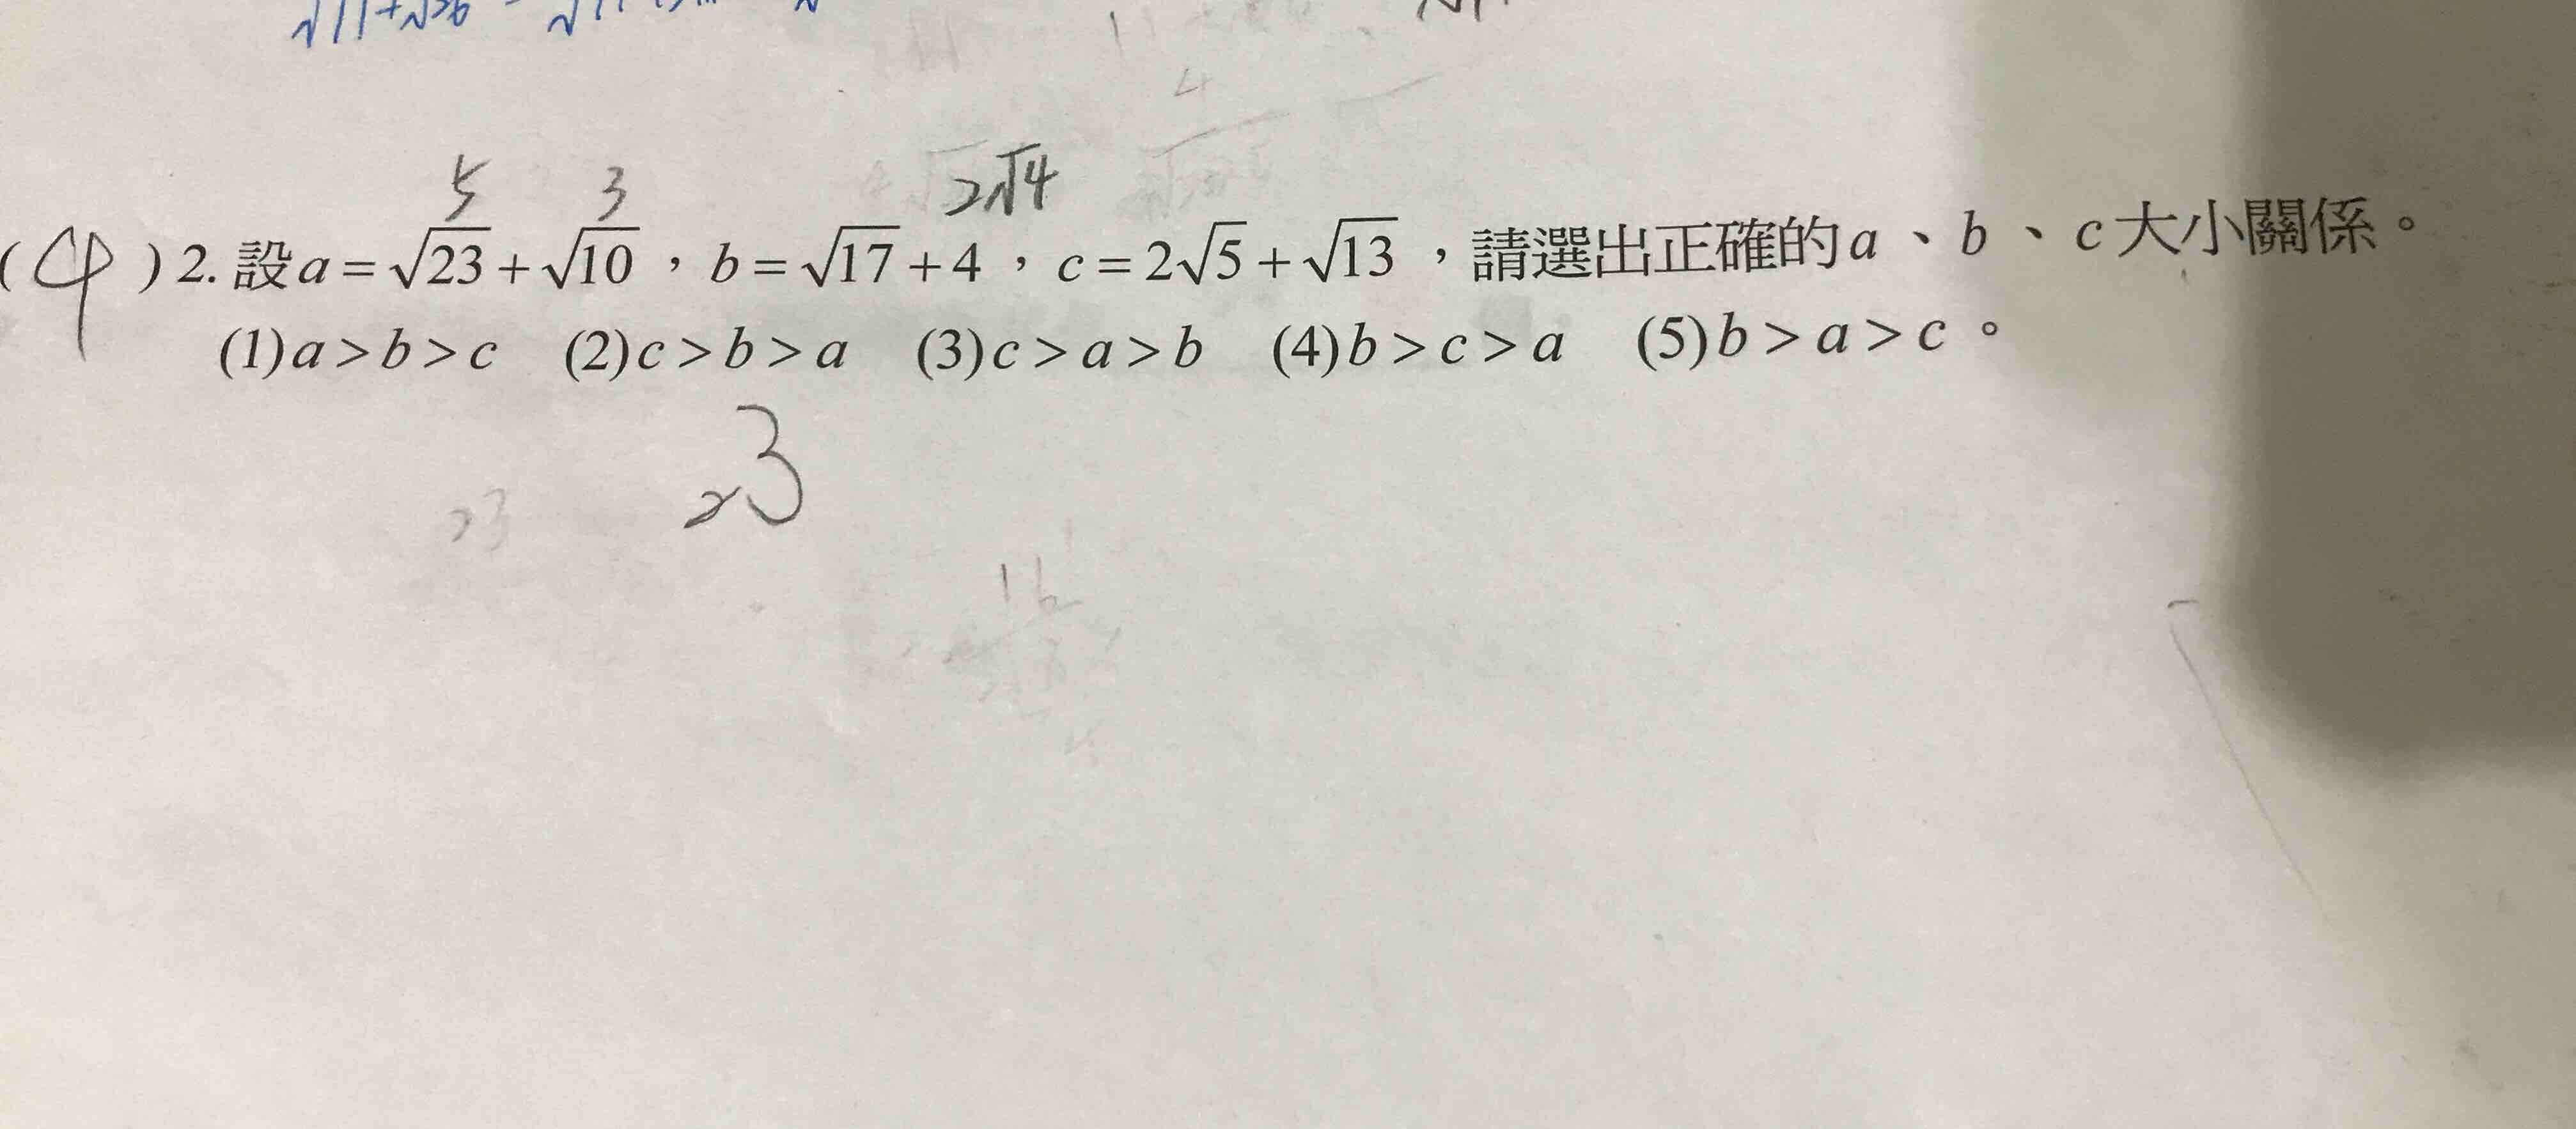 5 3 2√4
( 4 ) 2. 設a = √23 + √10 ， b = √17 + 4 ， c = 2√5 + √13 ，請選出正確的a 、 b 、 c大小關係。
(1)a > b > c (2)c > b > a (3)c > a > b (4)b > c > a (5)b > a > c 。
23
23
16